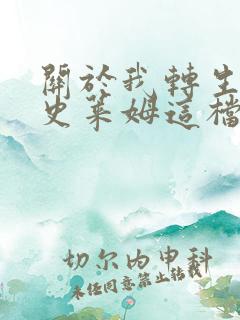 關於我轉生
史萊姆這檔
切尔内申科
未经同意禁止转载